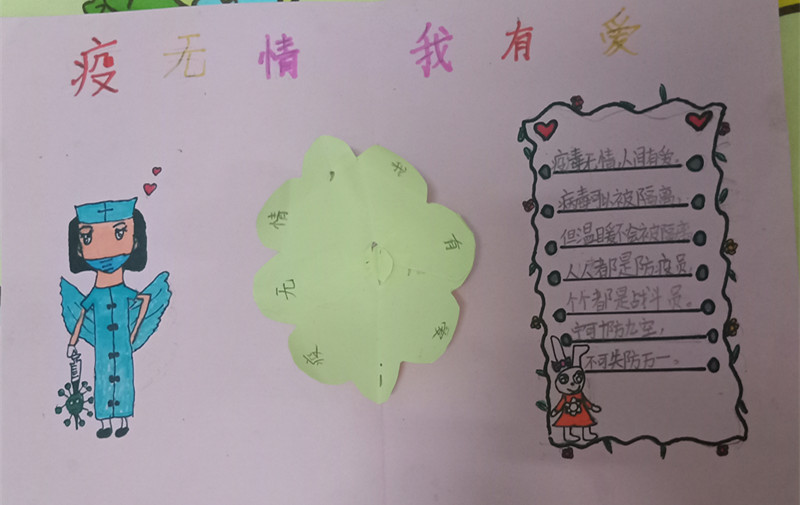 疫无情 我有爱
疫
无
情
，
我
有
爱
！
病毒无情,人间有爱。
病毒可以被隔离。
但温暖不会被隔离
人人都是防疫员
个个都是战斗员。
宁可十防九空，
不可失防万一。